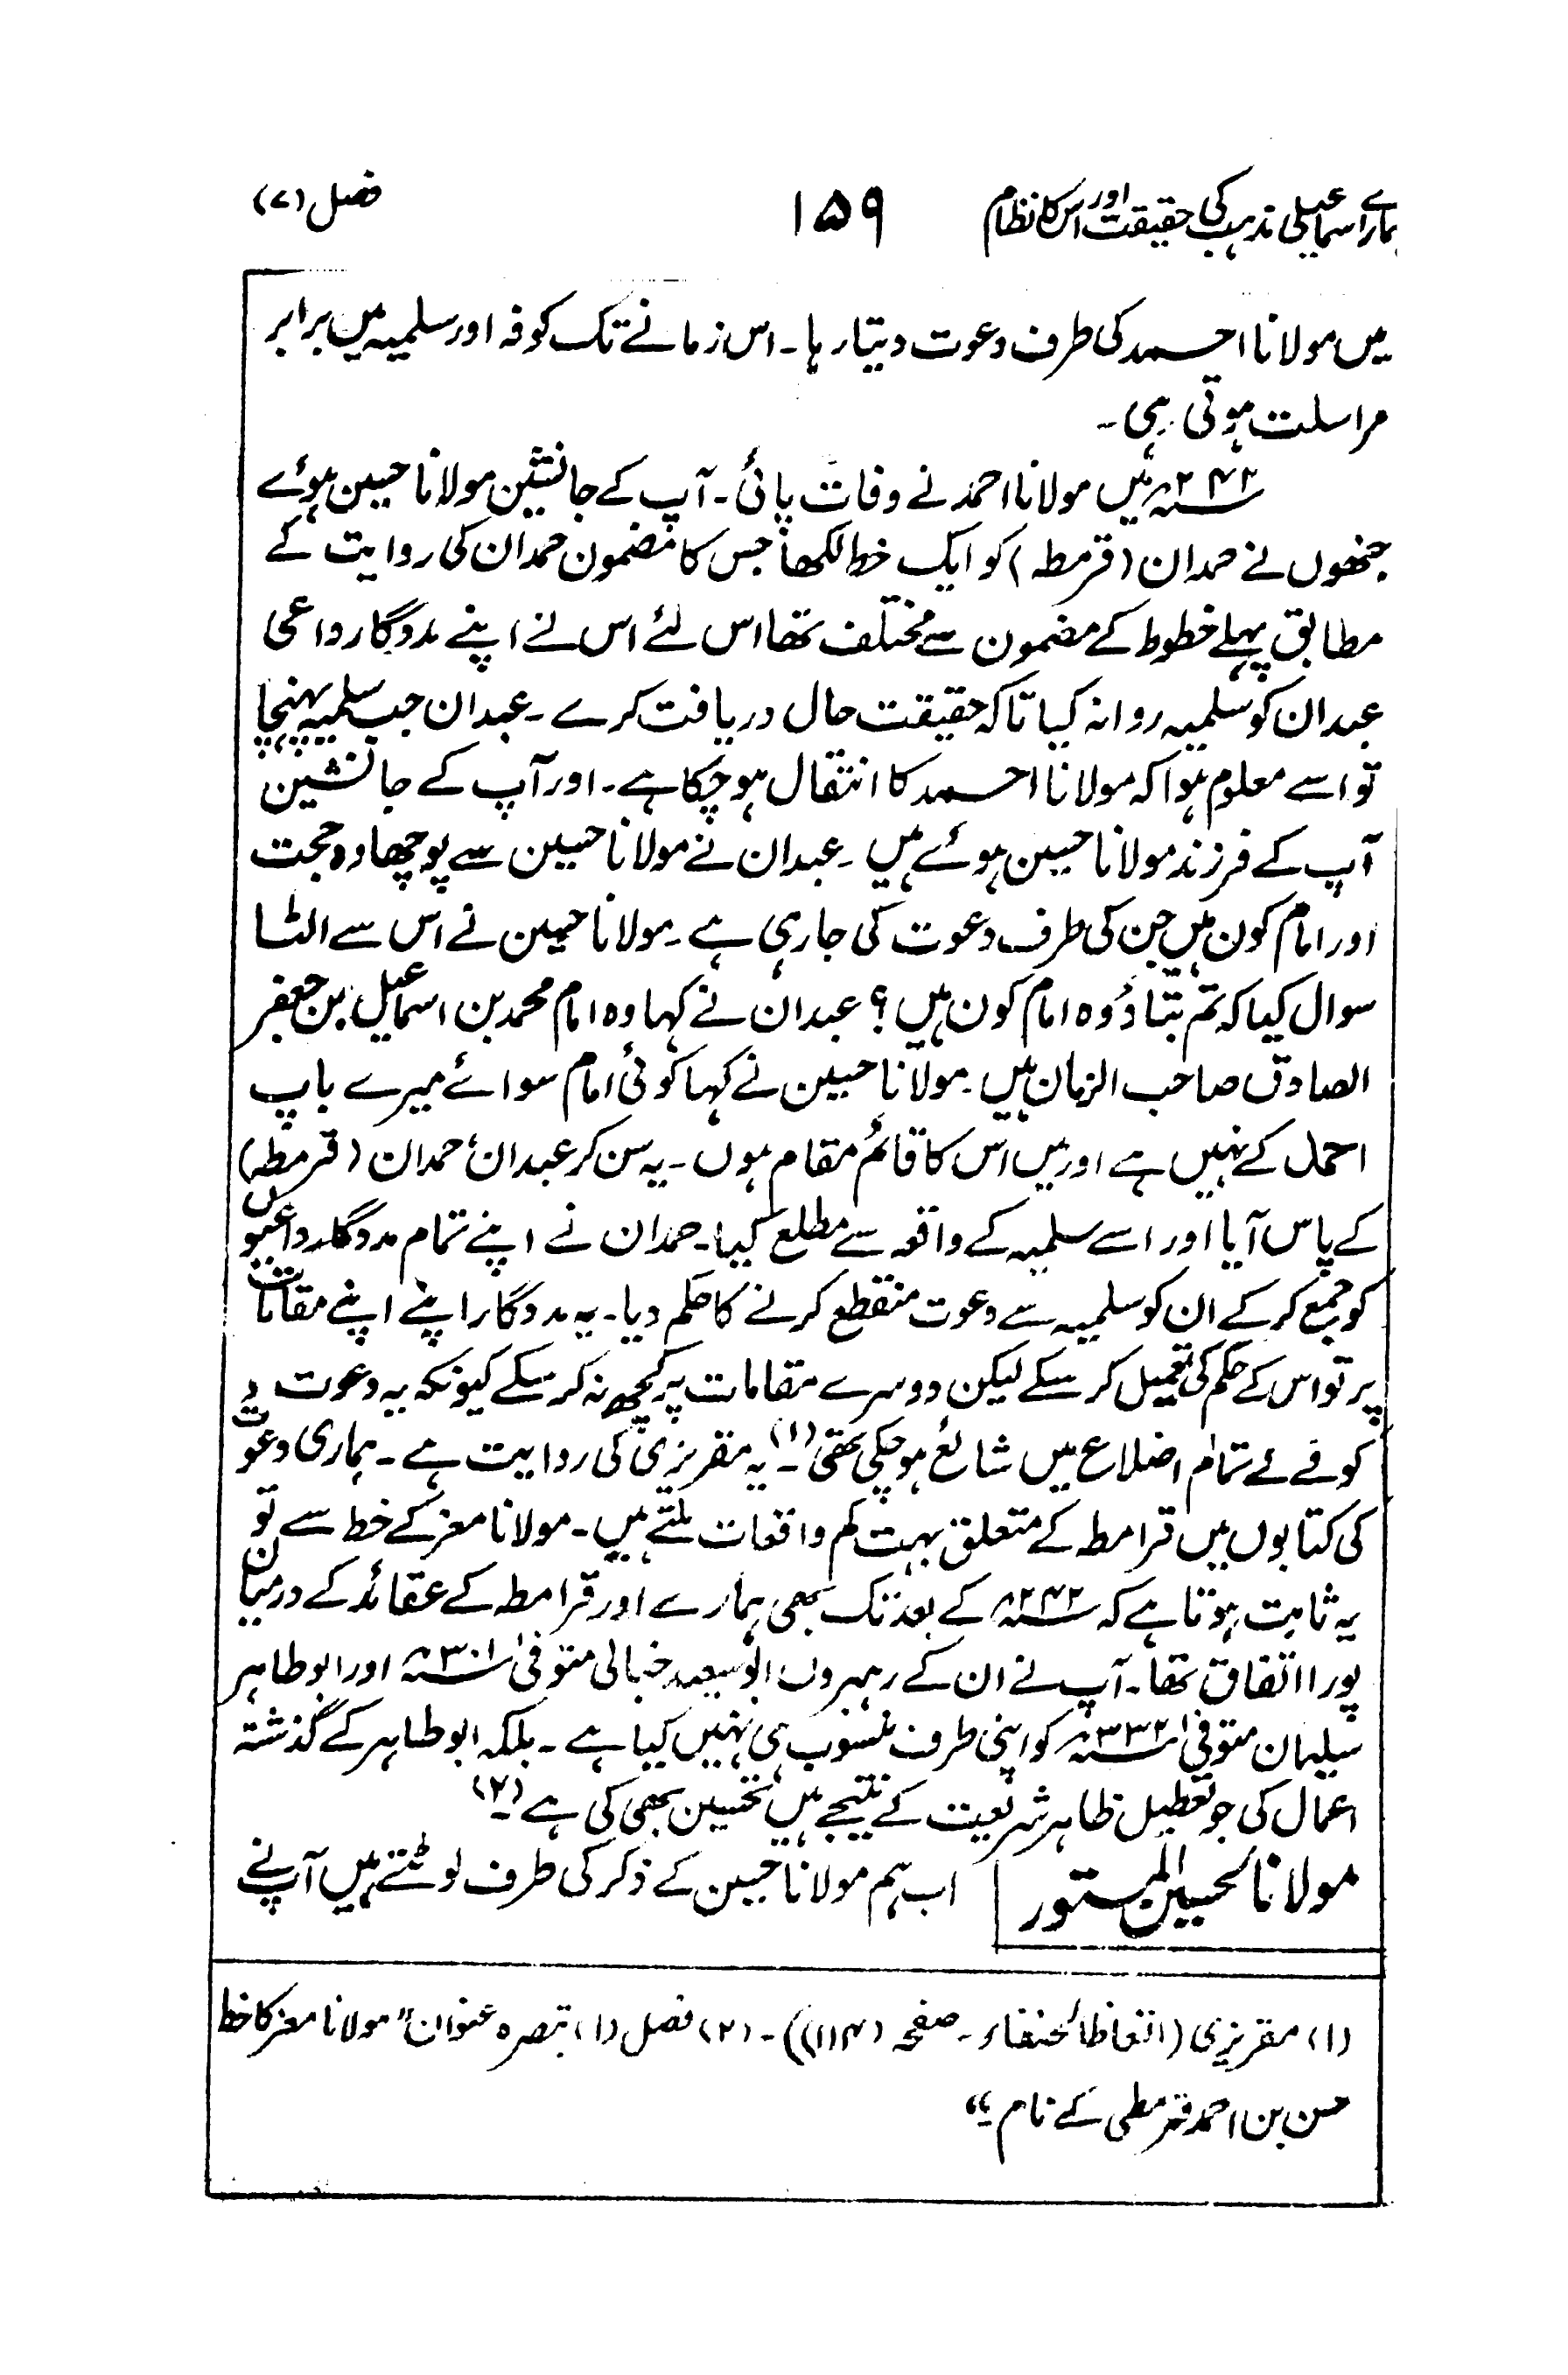 ہمارے اسماعیلی مذہب کی حقیقت اور اس کا نظام ۱۵۹ فصل (۷)
میں مولانا احمد کی طرف دعوت دیتا رہا۔ اس زمانے تک کوفہ اور سلمیہ میں برابر
مراسلت ہوتی رہی۔
۲۴۲ھ میں مولانا احمد نے وفات پائی۔ آپ کے جانشین مولانا حسین ہوئے
جنھوں نے حمدان (قرمطہ) کو ایک خط لکھا جس کا مضمون حمدان کی روایت کے
مطابق پہلے خطوط کے مضمون سے مختلف تھا اس لئے اس نے اپنے مددگار داعی
عبدان کو سلمیہ روانہ کیا تاکہ حقیقت حال دریافت کرے۔ عبدان جب سلمیہ پہنچا
تو اسے معلوم ہوا کہ مولانا احمد کا انتقال ہو چکا ہے۔ اور آپ کے جانشین
آپ کے فرزند مولانا حسین ہوئے ہیں۔ عبدان نے مولانا حسین سے پوچھا وہ حجت
اور امام کون ہیں جن کی طرف دعوت کی جا رہی ہے۔ مولانا حسین نے اس سے الٹا
سوال کیا کہ تم بتاؤ وہ امام کون ہیں؟ عبدان نے کہا وہ امام محمد بن اسماعیل بن جعفر
الصادق صاحب الزمان ہیں۔ مولانا حسین نے کہا کوئی امام سوائے میرے باپ
احمد کے نہیں ہے اور میں اس کا قائم مقام ہوں۔ یہ سن کر عبدان، حمدان (قرمطہ)
کے پاس آیا اور اسے سلمیہ کے واقعہ سے مطلع کیا۔ حمدان نے اپنے تمام مددگار داعیوں
کو جمع کر کے ان کو سلمیہ سے دعوت منقطع کرنے کا حکم دیا۔ یہ مددگار اپنے اپنے مقامات
پر تو اس کے حکم کی تعمیل کر سکے لیکن دوسرے مقامات پر کچھ نہ کر سکے کیونکہ یہ دعوت
کوفے کے تمام اضلاع میں شائع ہو چکی تھی (۱)۔ یہ مقریزی کی روایت ہے۔ ہماری دعوت
کی کتابوں میں قرامطہ کے متعلق بہت کم واقعات ملتے ہیں۔ مولانا معز کے خط سے تو
یہ ثابت ہوتا ہے کہ ۲۴۲ھ کے بعد تک بھی ہمارے اور قرامطہ کے عقائد کے درمیان
پورا اتفاق تھا۔ آپ نے ان کے رہبروں ابو سعید جنابی متوفیٰ ۳۰۱ھ اور ابو طاہر
سلیمان متوفیٰ ۳۳۲ھ کو اپنی طرف منسوب ہی نہیں کیا ہے۔ بلکہ ابو طاہر کے گذشتہ
اعمال کی جو تعطیل ظاہر شریعت کے نتیجے ہیں تحسین بھی کی ہے (۲)۔
مولانا الحسین المستور اب ہم مولانا حسین کے ذکر کی طرف لوٹتے ہیں آپ نے
(۱) مقریزی (اتعاظ الحنفاء۔ صفحہ (۱۱۴))۔ (۲) فصل (۱) تبصرہ عنوان "مولانا معز کا خط
حسن بن احمد قرمطی کے نام۔"